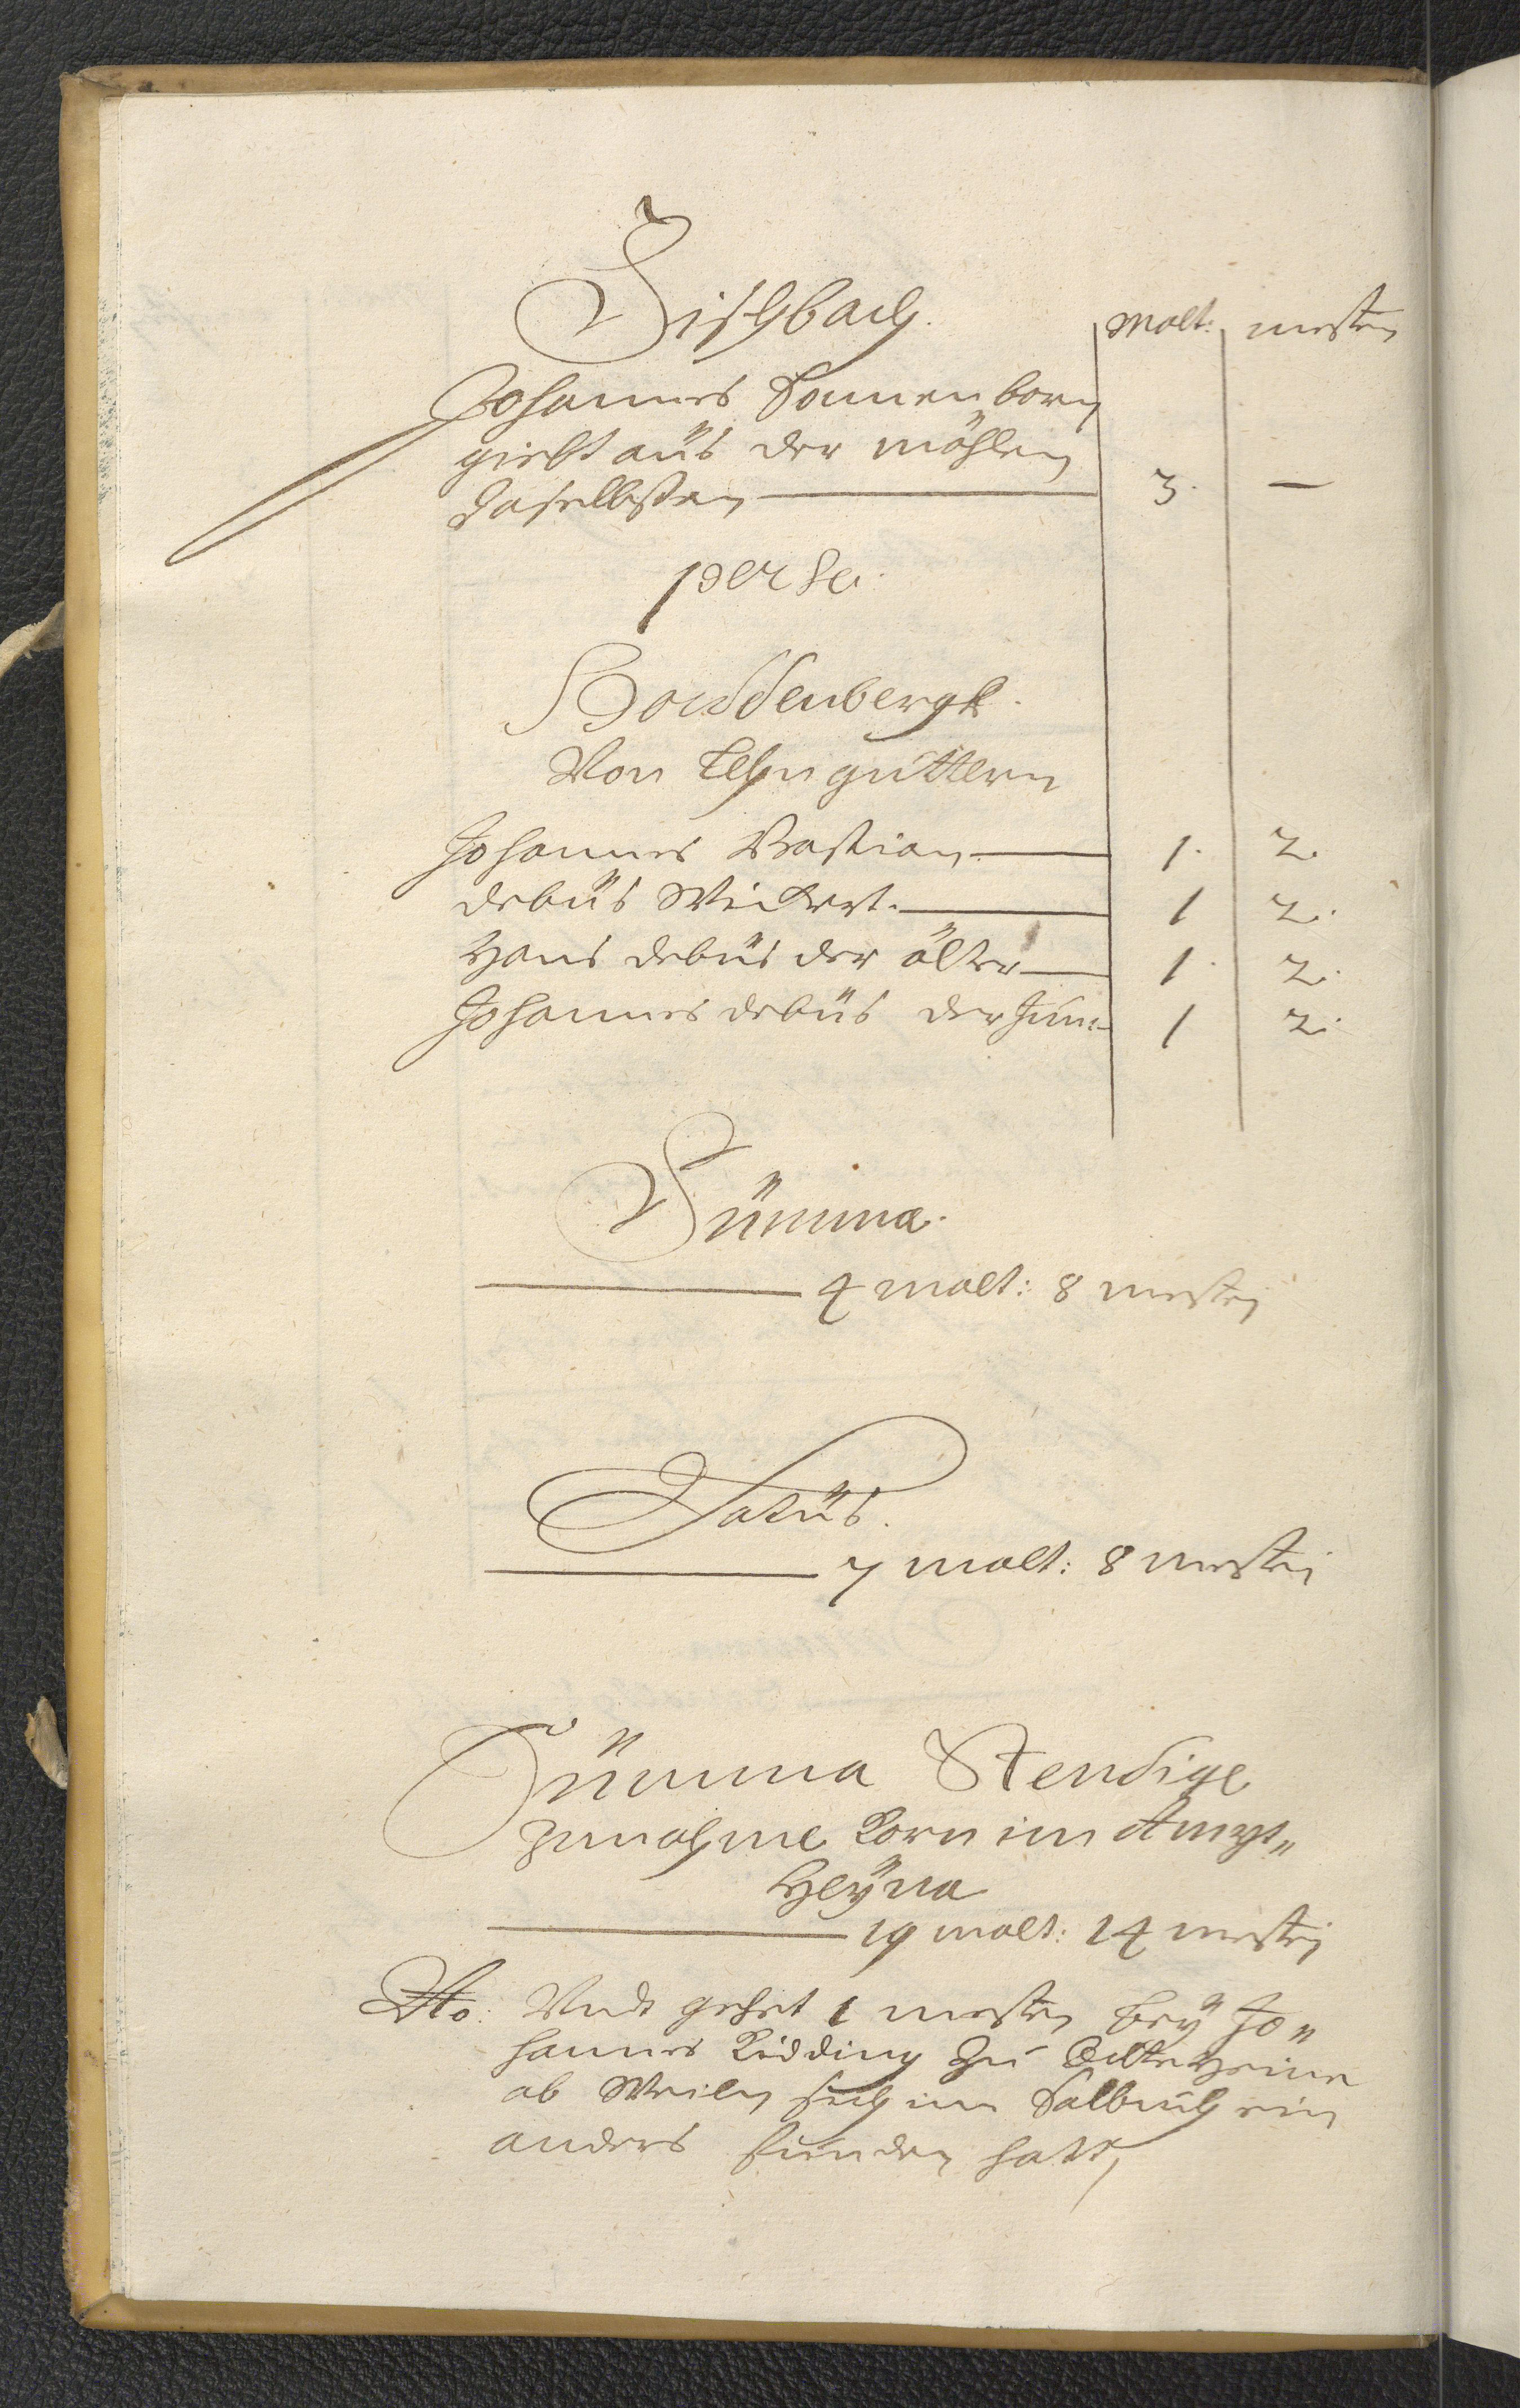 Fischbach. Malt: mesten
Johannes Sonnenborn
giebt aüs der möhlen
daselbsten — 3. —
per se.
Boddenbergk.
Von Lehn güttern
Johannes Bastian — 1. 2.
debüs Wickert. — 1 2.
Hans debüs der älter — 1. 2.
Johannes debüs der Jün: 1 2.
Sümma.
— 4 malt: 8 mesten
Latüs.
— 7 malt: 8 mesten
Sümma Stendige
Jnnahme Korn im Ampt„
Heÿna
— 19 malt: 14 mesten
No: Undt gehet 1 mesten beÿ Jo„
hannes Ridding zu
ab Weilen sich im Salbuch ein
anders funden hatt,